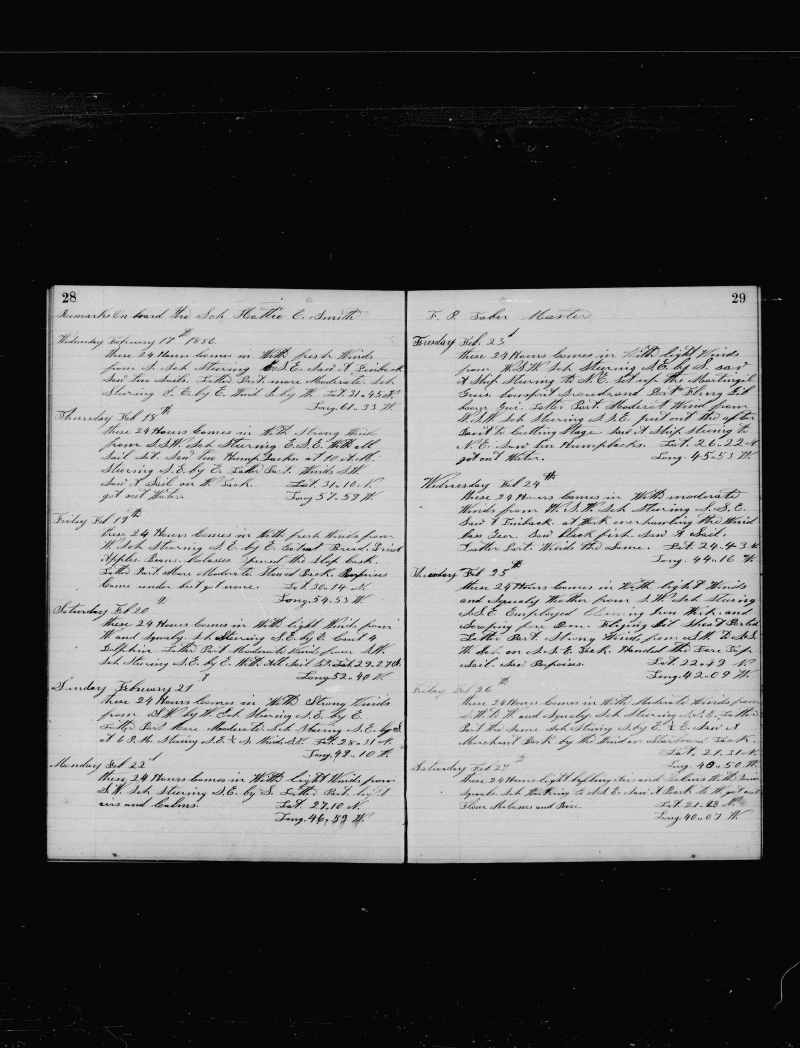 28
Remarks on board the Sch Hattie E. Smith
Wednesday February 17th 1886
these 24 Hours Comes in With fresh Winds
from S. Sch Steering E.S.E. Saw A Finback
Saw two Sails. Latter Part more Moderate. Sch
Steering S.E. by E. Wind S. by W. Lat. 31-43 N
Long. 61-33 W
Thursday Feb 18th
these 24 Hours Comes in With Strong Winds
from S.S.W. Sch Steering E.S.E. With all
Sail Set. Saw two Humpbacks. at 10 A.M.
Steering S.E. by E. Latter Part. Winds S.W.
Saw A Sail on W. Tack. Lat. 31-10 N
got out Water. Long 57-59 W
Friday Feb 19th
these 24 Hours Comes in With fresh Winds from
W. Sch Steering S.E. by E. Got out Bread. Dried
Apples. Beans. Molasses. opened the Slop Cask.
Latter Part More Moderate. Porpoises
Came under but got none. Lat. 30-14 N
Long. 54-53 W
Saturday Feb 20
these 24 Hours Comes in With light Winds from
W and Squaly. Sch Steering S.E. by E. Caut 4
Dolphin. Latter Part Moderate Winds from S.W.
Sch Steering S.E. by E. With All Sail Set. Lat 29-27 N
Long. 52-40 W
Sunday February 21
these 24 Hours Comes in With Strong Winds
from S.W. by W. Sch Steering S.E. by E.
Latter Part More Moderate Sch Steering S.E. by S
at 6 P.M. Steering S.E. Lat. 28-31 N
Long. 49-10 W
Monday Feb 22d
these 24 Hours Comes in With light Winds from
S.W. Sch Steering S.E. by S. Latter Part. light
airs and Calms. Lat 27.10 N.
Long. 46-59 W
29
F. P. Master
Tuesday Feb. 23d
these 24 Hours Comes in With light Winds
from W.S.W. Sch Steering S.E. by S. saw
A Ship Steering to N.E. Set up the Martingil
Guis. and Port Flying Jib
boom Gui. Latter Part. Moderat Wind from
W.S.W. Sch Steering S.S.E. put out the after
to Cutting Stage Saw A Ship Steering to
N.E. Saw two Humpbacks. Lat. 26-22 N
got out Water. Long. 45-53 W
Wednesday Feb 24th
these 24 Hours Comes in With moderate
Winds from W.S.W. Sch Steering S.S.E.
Saw 1 Finback. at Work overhawling the Wind
lass Gear. Saw black fish. Saw A Sail.
Latter Part. Winds the Same. Lat. 24-43 N
Long. 44-16 W
Thursday Feb 25th
these 24 Hours Comes in With light Winds
and Squaly Wether from S.W. Sch Steering
S.S.E. Employed Cleaning Iron Work. and
Scraping pin Bon. Flying Jib Sheat Parted
Latter Part. Strong Winds from
W. Sch on S.S.E. Tack. Handed the Fore Top
Sail. Saw Porpoises. Lat. 22-49 N
Long. 42-09 W
Friday Feb 26th
these 24 Hours Comes in With Moderate Winds from
and Squaly. Sch Steering S.S.E. Latter
Part the Same Sch Steering S. by E. Saw A
Merchant Bark by the Wind on Starboard Tack.
Lat. 21.31 N.
Long. 40-50 W
Saturday Feb 27th
these 24 Hours light bafling Airs and Calms With Rain
Squals. Sch to S.S.E. Saw A Bark to W. got out
Flour Molasses and Rice. Lat 21-22 N
Long. 40-07 W